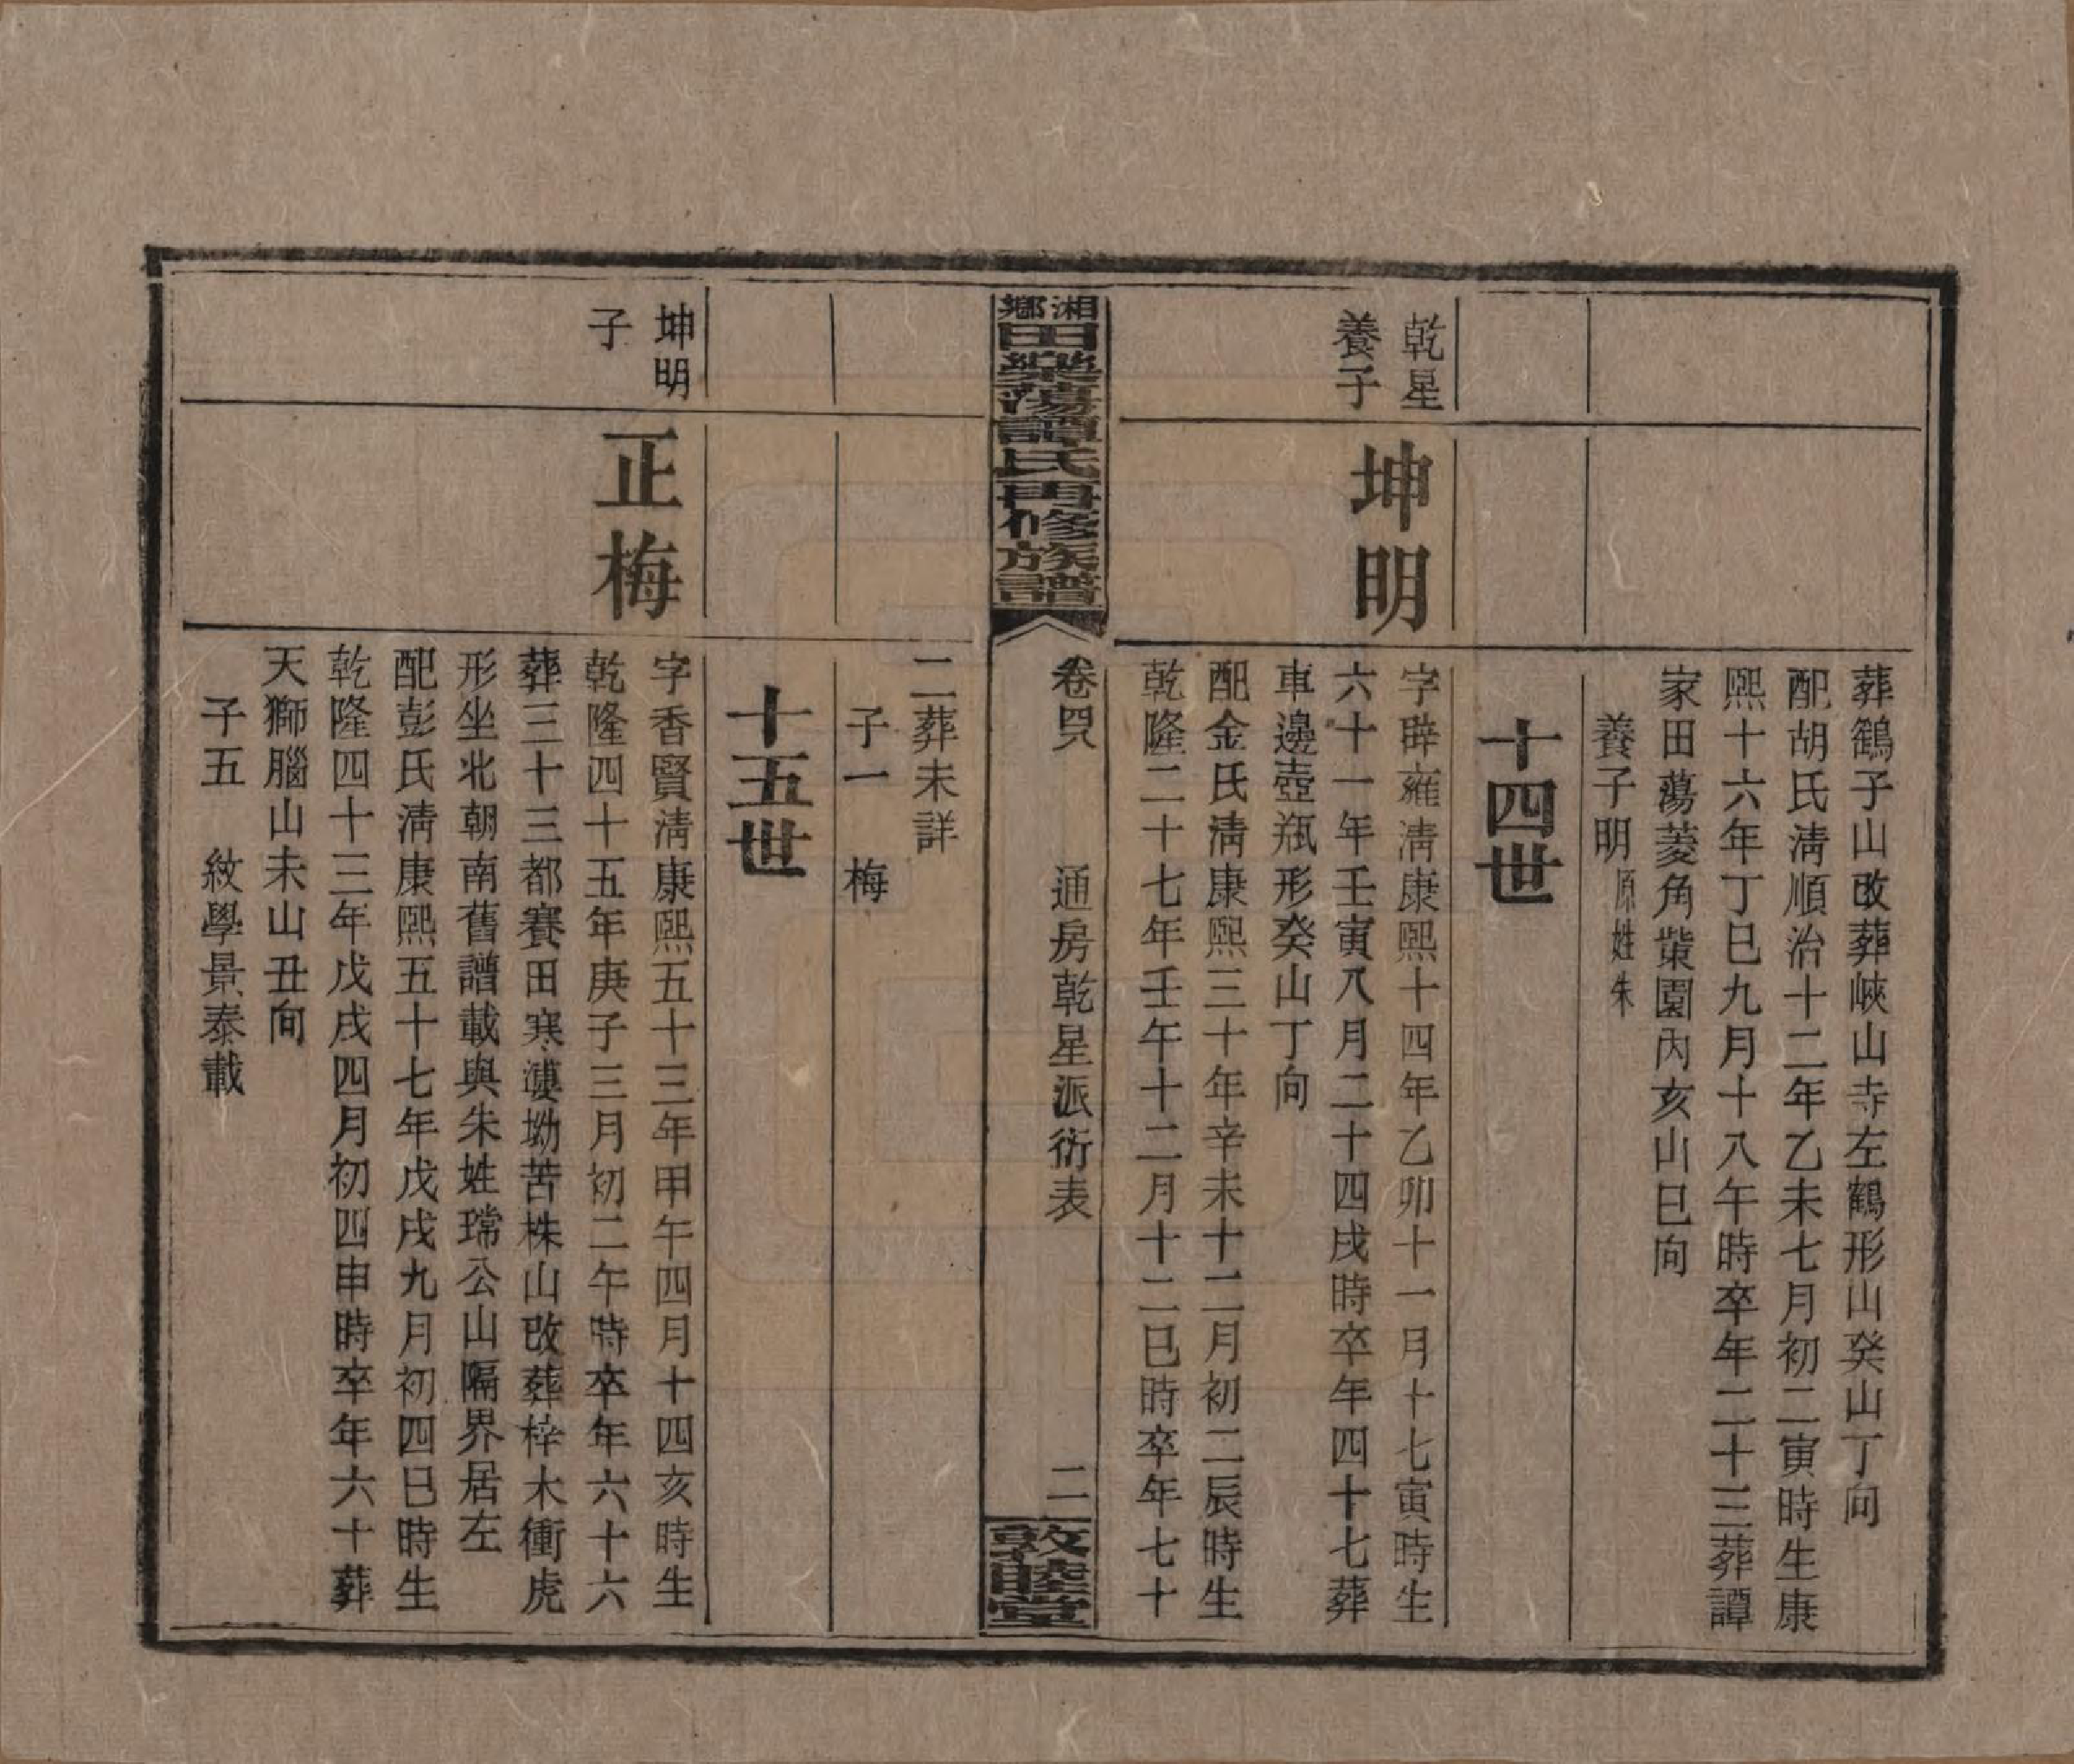 葬鶴子山改葬峽山寺左鶴形山癸山丁向
配胡氏清順治十二年乙未七月初二寅時生康
熙十六年丁巳九月十八午時卒年二十三葬譚
家田蕩菱角柴園內亥山巳向
養子明原姓朱
十四世
乾星
養子
坤明
字辟雍清康熙十四年乙卯十一月十七寅時生
六十一年壬寅八月二十四戌時卒年四十七葬
車邊壺瓶形癸山丁向
配金氏清康熙三十年辛未十二月初二辰時生
乾隆二十七年壬午十二月十二巳時卒年七十
湘鄉田樂蕩譚氏再修族譜
卷四八
通房乾星派衍表
二
敦睦堂
二葬未詳
子一　梅
十五世
坤明
子
正梅
字香賢清康熙五十三年甲午四月十四亥時生
乾隆四十五年庚子三月初二午時卒年六十六
葬三十三都賽田寒漊坳苦株山改葬梓木衝虎
形坐北朝南舊譜載與朱姓瑺公山隔界居左
配彭氏清康熙五十七年戊戌九月初四巳時生
乾隆四十三年戊戌四月初四申時卒年六十葬
天獅腦山未山丑向
子五　紋學景泰載